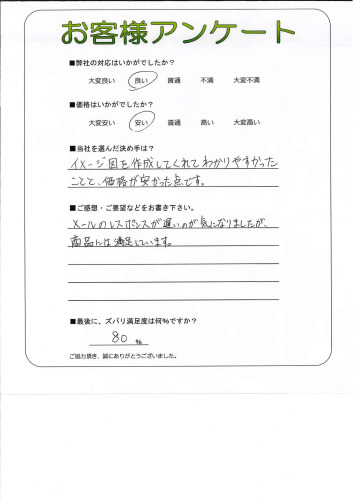 お客様アンケート
■弊社の対応はいかがでしたか?
大変良い 良い 普通 不満 大変不満
■価格はいかがでしたか?
大変安い 安い 普通 高い 大変高い
■当社を選んだ決め手は?
イメージ図を作成してくれてわかりやすかった
ことと、価格が安かった点です。
■ご感想・ご要望などをお書き下さい。
メールのレスポンスが遅いのが気になりましたが、
商品には満足しています。
■最後に、ズバリ満足度は何%ですか?
80 %
ご協力頂き、誠にありがとうございました。